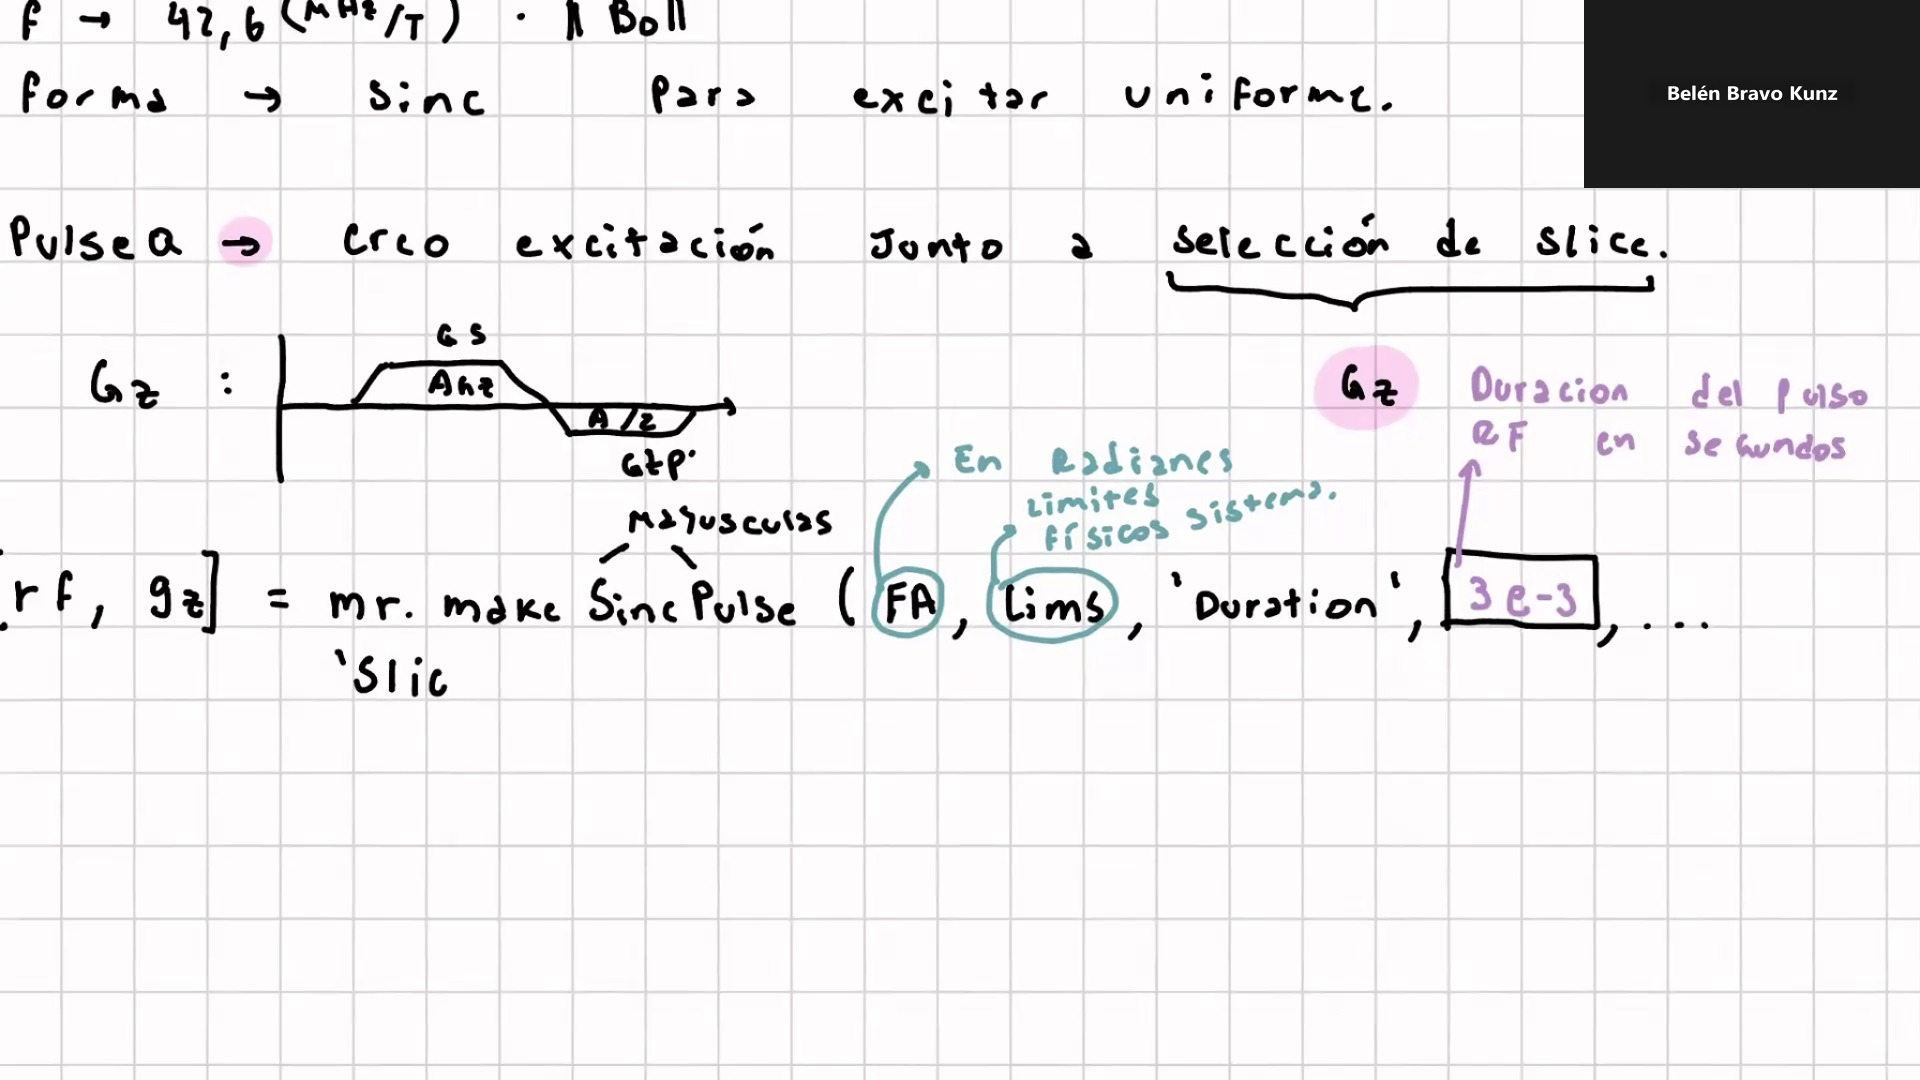 f → 42,6 (MHz/T) · ‖Bo‖
forma → sinc para excitar uniforme.
Belén Bravo Kunz
PulseQ → creo excitación junto a selección de slice.
GS
Gz : AGz
A/2
Gz
Duracion del pulso
RF en segundos
En Radianes
Limites
físicos sistema.
Mayusculas
[rf, gz] = mr.makeSincPulse (FA, Lims, 'Duration', 3e-3, ...
'Slic